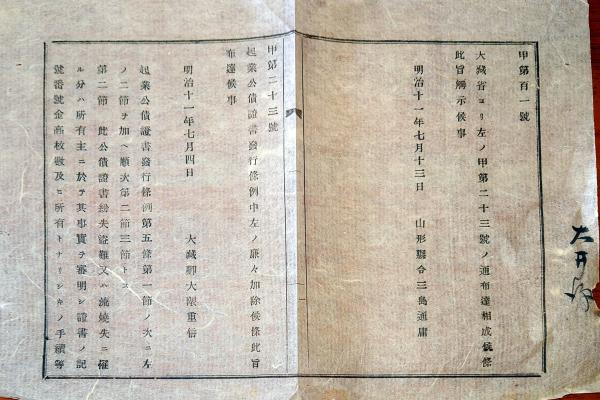 甲第百一號
大藏省ヨリ左ノ甲第二十三號ノ通布達相成候條
此旨觸示候事
明治十一年七月十三日　山形縣令三島通庸
甲第二十三號
起業公債證書發行條例中左ノ廉々加除候條此旨
布達候事
明治十一年七月四日　大藏卿大隈重信
起業公債證書發行條例第五條第一節ノ次ニ左
ノ二節ヲ加ヘ順次第二節三節トス
第二節　此公債證書紛失盜難又ハ流燒失ニ罹
ル分ハ所有主ニ於テ其事實ヲ審明シ證書ノ記
號番號金高枚數及ヒ所有トナリシキノ手續等